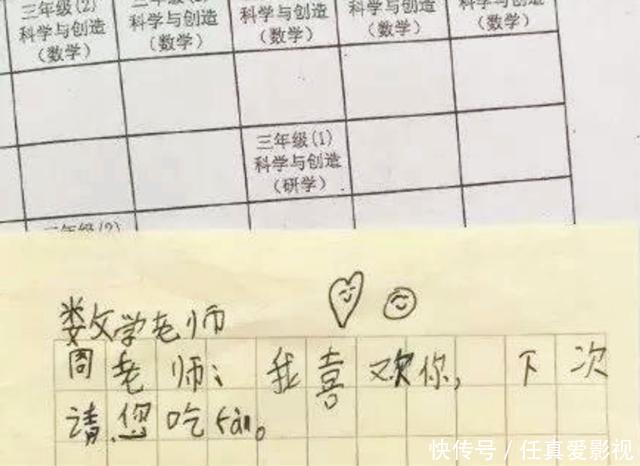 三年级(2)
科学与创造
(数学)
科学与创造
(数学)
科学与创造
(数学)
科学与创造
(数学)
科学与创造
(数学)
三年级(1)
科学与创造
(研学)
三年级(2)
数学老师
周老师：我喜欢你，下次
请您吃fàn。
快传号/任真爱影视